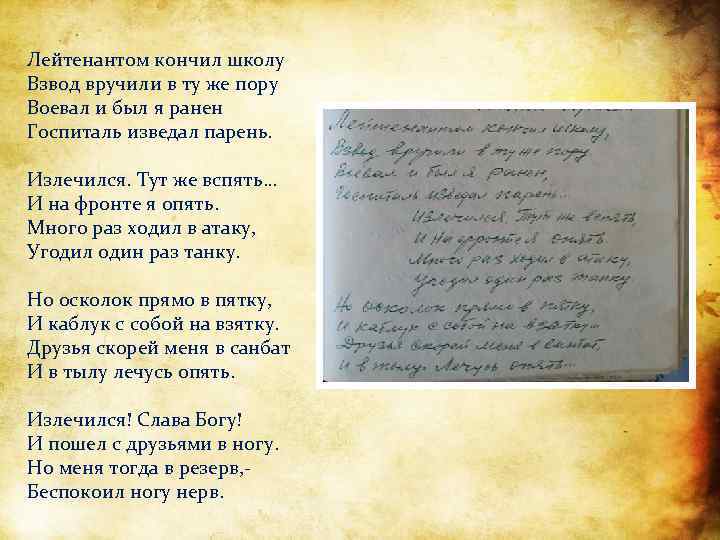 Лейтенантом кончил школу
Взвод вручили в ту же пору
Воевал и был я ранен
Госпиталь изведал парень.
Излечился. Тут же вспять...
И на фронте я опять.
Много раз ходил в атаку,
Угодил один раз танку.
Но осколок прямо в пятку,
И каблук с собой на взятку.
Друзья скорей меня в санбат
И в тылу лечусь опять.
Излечился! Слава Богу!
И пошел с друзьями в ногу.
Но меня тогда в резерв,-
Беспокоил ногу нерв.
Лейтенантом кончил школу,
Взвод вручили в ту же пору.
Воевал и был я ранен,
Госпиталь изведал парень...
Излечился. Тут же вспять,
И на фронте я опять.
Много раз ходил в атаку,
Угодил один раз танку.
Но осколок прямо в пятку,
И каблук с собой на взятку...
Друзья скорей меня в санбат,
И в тылу лечусь опять...